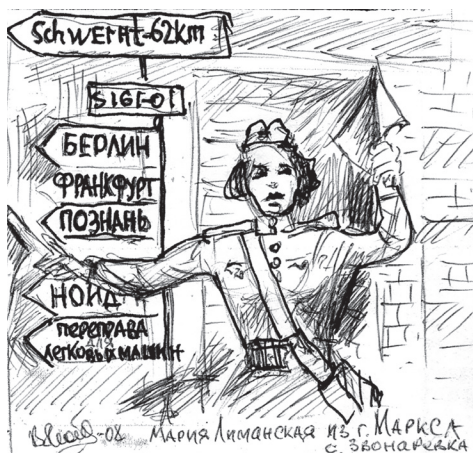 Schwerht-62km
S161-01
БЕРЛИН
ФРАНКФУРТ
ПОЗНАНЬ
НОЙД
ПЕРЕПРАВА
ДЛЯ
ЛЕГКОВЫХ МАШИН
-08 МАРИЯ ЛИМАНСКАЯ ИЗ г. МАРКСА
с. ЗВОНАРЕВКА